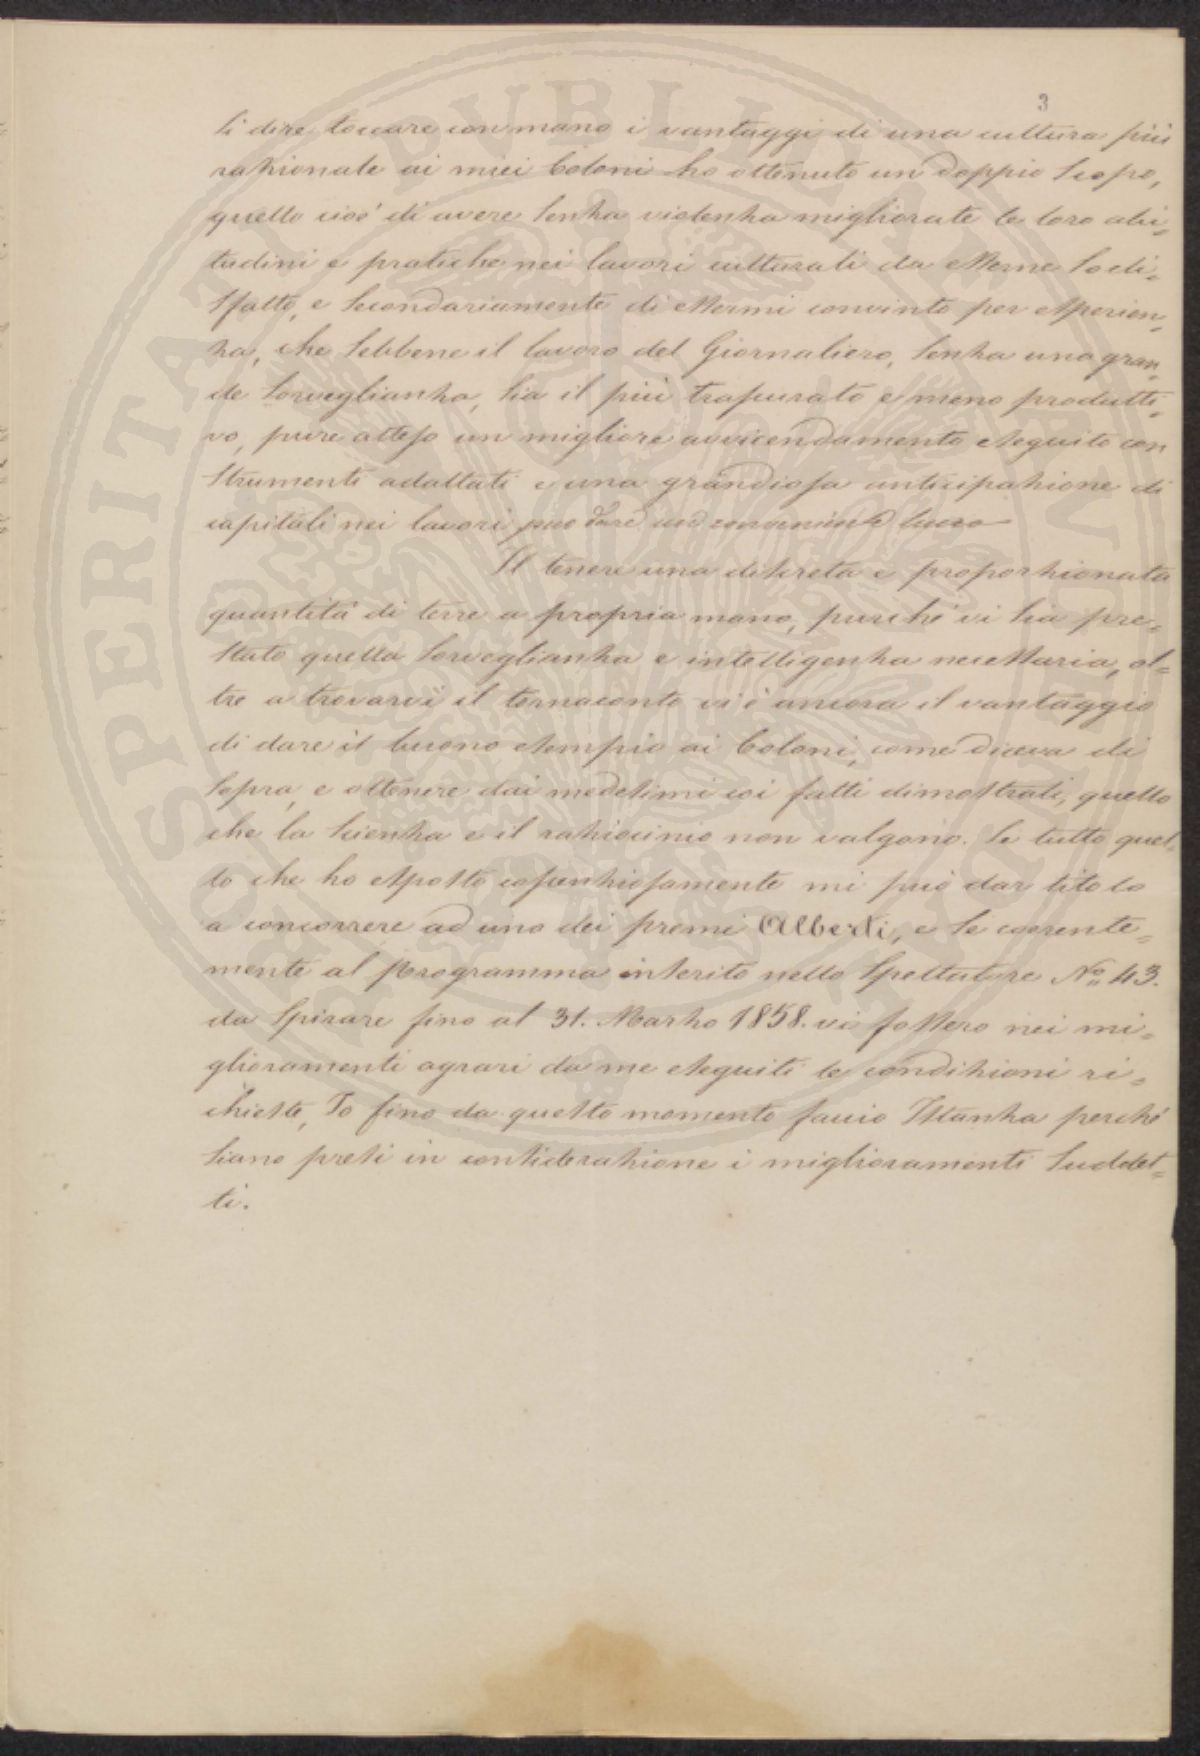 3
si dire toccare con mano i vantaggi di una cultura più
razionale ai miei Coloni ho ottenuto un doppio scopo,
quello cioè di avere senza violenza migliorate le loro abi=
tudini e pratiche nei lavori culturali da esserne sodi=
sfatto, e secondariamente di essermi convinto per esperien=
za, che sebbene il lavoro del Giornaliero, senza una gran=
de sorveglianza, sia il più trapurato e meno produtti=
vo, pure atteso un migliore avvicendamento eseguito con
strumenti adattati e una grandiosa anticipazione di
capitali nei lavori può dare un conveniente lucro
Il tenere una discreta e proporzionata
quantità di terre a propria mano, purché vi sia pre=
stato quella sorveglianza e intelligenza necessaria, ol=
tre a trovarvi il tornaconto vi è ancora il vantaggio
di dare il buono esempio ai Coloni, come diceva di
sopra, e ottenere dai medesimi coi fatti dimostrati, quello
che la scienza e il raziocinio non valgono. Se tutto quel=
lo che ho esposto coscienziosamente mi può dar titolo
a concorrere ad uno dei premi Alberti, e se coerente=
mente al Programma inserito nello Spettatore No. 43.
da spirare fino al 31. Marzo 1858. vi fossero nei mi=
glioramenti agrari da me eseguiti le condizioni ri=
chieste, Io fino da questo momento faccio Istanza perché
siano presi in considerazione i miglioramenti suddet=
ti.
PROSPERITATI PVBLICAE AVGENDAE